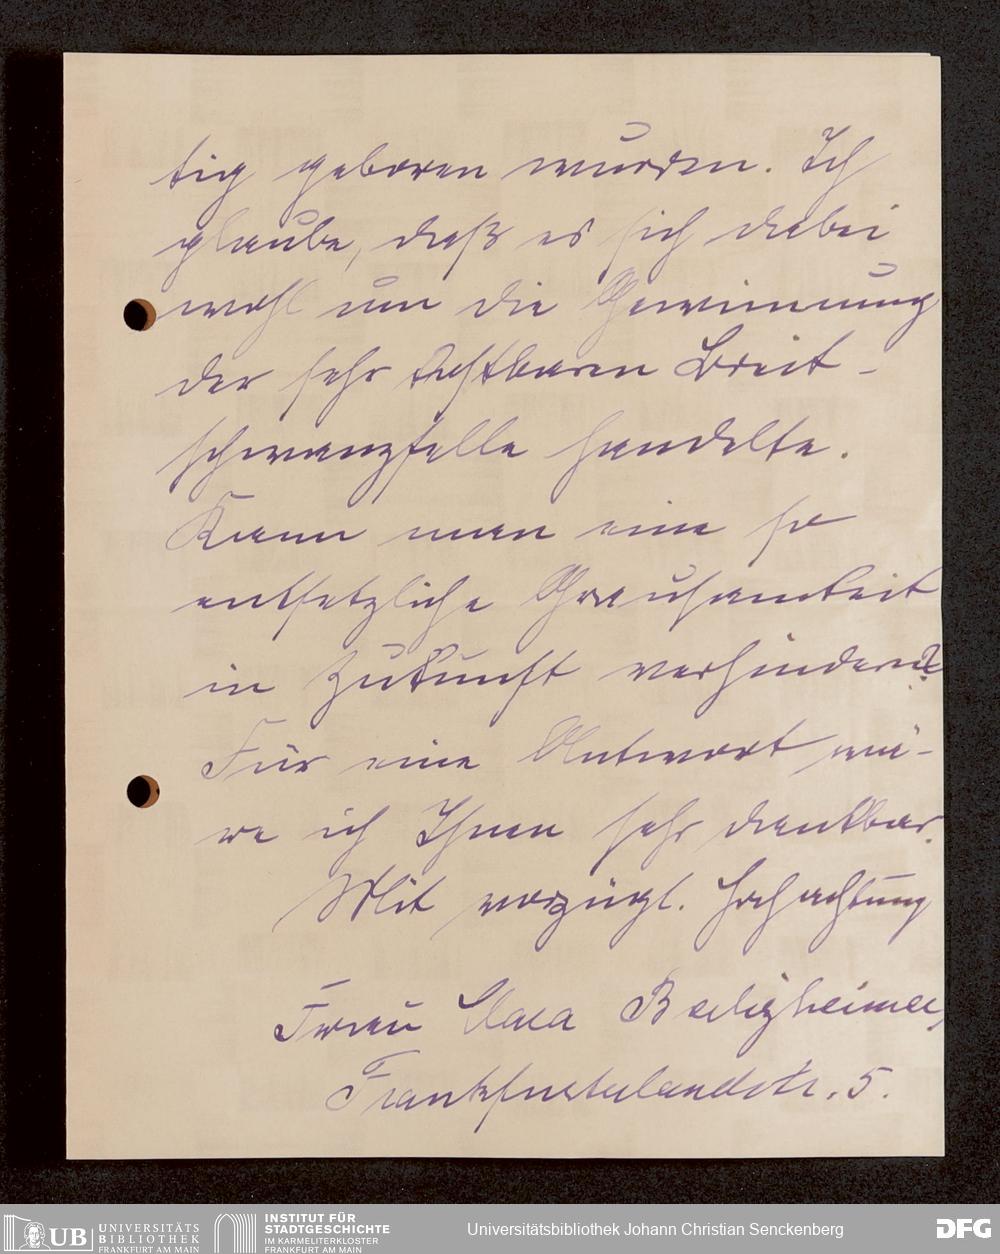 tig geboren wurden. Ich
glaube, daß es sich dabei
wohl um die Gewinnung
der sehr kostbaren Breit-
schwanzfelle handelte.
Kann man eine so
entsetzliche Grausamkeit
in Zukunft verhindern?
Für eine Antwort wä-
re ich Ihnen sehr dankbar.
Mit vorzügl. Hochachtung
Frau Clara
Frankfurterlandstr. 5.
UB UNIVERSITÄTS
BIBLIOTHEK
FRANKFURT AM MAIN
INSTITUT FÜR
STADTGESCHICHTE
IM KARMELITERKLOSTER
FRANKFURT AM MAIN
Universitätsbibliothek Johann Christian Senckenberg
DFG